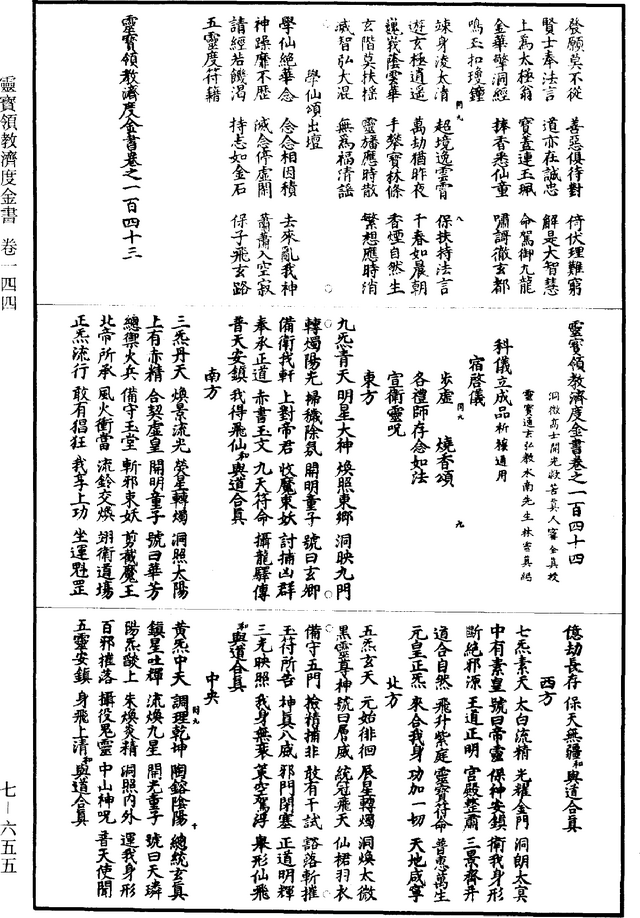 發願莫不從　善惡俱待對　倚伏理難窮
賢士奉法言　道亦在誠忠　解是大智慧
上為太極翁　寶蓋連玉珮　命駕御九龍
金華擎洞經　捧香悉仙童　嘯謌徹玄都
鳴玉扣瓊鐘
竦身淩太清　超境逸雲霄　保扶持法言
遊玄極逍遥　萬劫猶昨夜　千春如晨朝
巍峩蔭雲華　手攀寶林條　香煙自然生
玄階莫扶搖　靈旛應時散　繁想應時綃
威智弘大混　無為福清謡
學仙頌出壇
學仙絕華念　念念相因積　去來亂我神
神躁靡不歷　滅念停虛閑　蕭蕭入空寂
請經若饑渴　持志如金石　保子飛玄路
五靈度符籍
靈寶領教濟度金書卷之一百四十三
靈寶領教濟度金書卷之一百四十四
科儀立成品析禳通用
宿啓儀
步虛　燒香頌
各禮師存念如法
宣衛靈呪
東方
九炁青天　明星大神　煥照東鄉　洞映九門
轉燭陽光　掃穢除氛　開明童子　號曰玄卿
備衛我軒　上對帝君　收魔束妖　討捕凶群
奉承正道　赤書玉文　九天符命　攝龍驛傳
普天安鎮　我得飛仙和與道合真
南方
三炁丹天　煥景流光　熒星轉燭　洞照太陽
上有赤精　合契虛皇　開明童子　號曰華芳
總禦火兵　備守玉堂　斬邪束妖　剪截魔王
北帝所承　風火衝當　流鈴交煥　翊衛道場
正炁流行　敢有倡狂　我享上功　坐運魁罡
億劫長存　保天無疆和與道合真
西方
七炁素天　太白流精　光耀金門　洞朗太冥
中有素皇　號曰帝靈　保神安鎮　衛我身形
斷絕邪源　王道正明　宮殿整肅　三景齊并
道合自然　飛升紫庭　靈寶符命　普惠萬生
元皇正炁　來合我身　功加一切　天地咸寧
北方
五炁玄天　元始徘徊　辰星轉燭　洞煥太微
黑靈尊神　號曰層威　統冠飛天　仙裙羽衣
備守五門　檢精捕非　敢有干試　豁落斬摧
玉符所告　神真八威　邪門閉塞　正道明輝
三光映照　我身無衰　策空駕浮　舉形仙飛
和與道合真
中央
黃炁中天　調理乾坤　陶鎔陰陽　總統玄真
鎮星吐輝　流煥九星　開光童子　號曰天璘
陽炁歊上　朱煥炎精　洞照內外　運我身形
百邪摧落　攝役鬼靈　中山神呪　普天使聞
五靈安鎮　身飛上清和與道合真
靈寶領教濟度金書　卷一四四
七－六五五